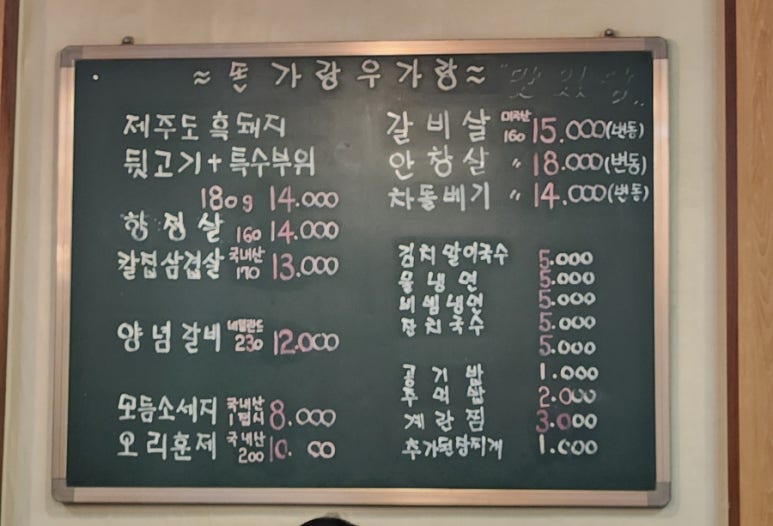 ≈ 돈 가랑우가랑 ≈ "맛 있 상"
제주도 흑돼지
뒷고기 + 특수부위
180g 14.000
항정살 160 14.000
칼집삼겹살 국내산 170 13.000
양념갈비 네덜란드 230 12.000
모듬소세지 국내산 1접시 8.000
오리훈제 국내산 200 10. 00
갈비살 미국산 160 15.000(변동)
안창살 〃 18.000(변동)
차돌베기 〃 14.000(변동)
김치말이국수 5.000
물냉면 5.000
비빔냉면 5.000
잔치국수 5.000
5.000
공기밥 1.000
주먹밥 2.000
계란찜 3.000
추가된장찌개 1.000